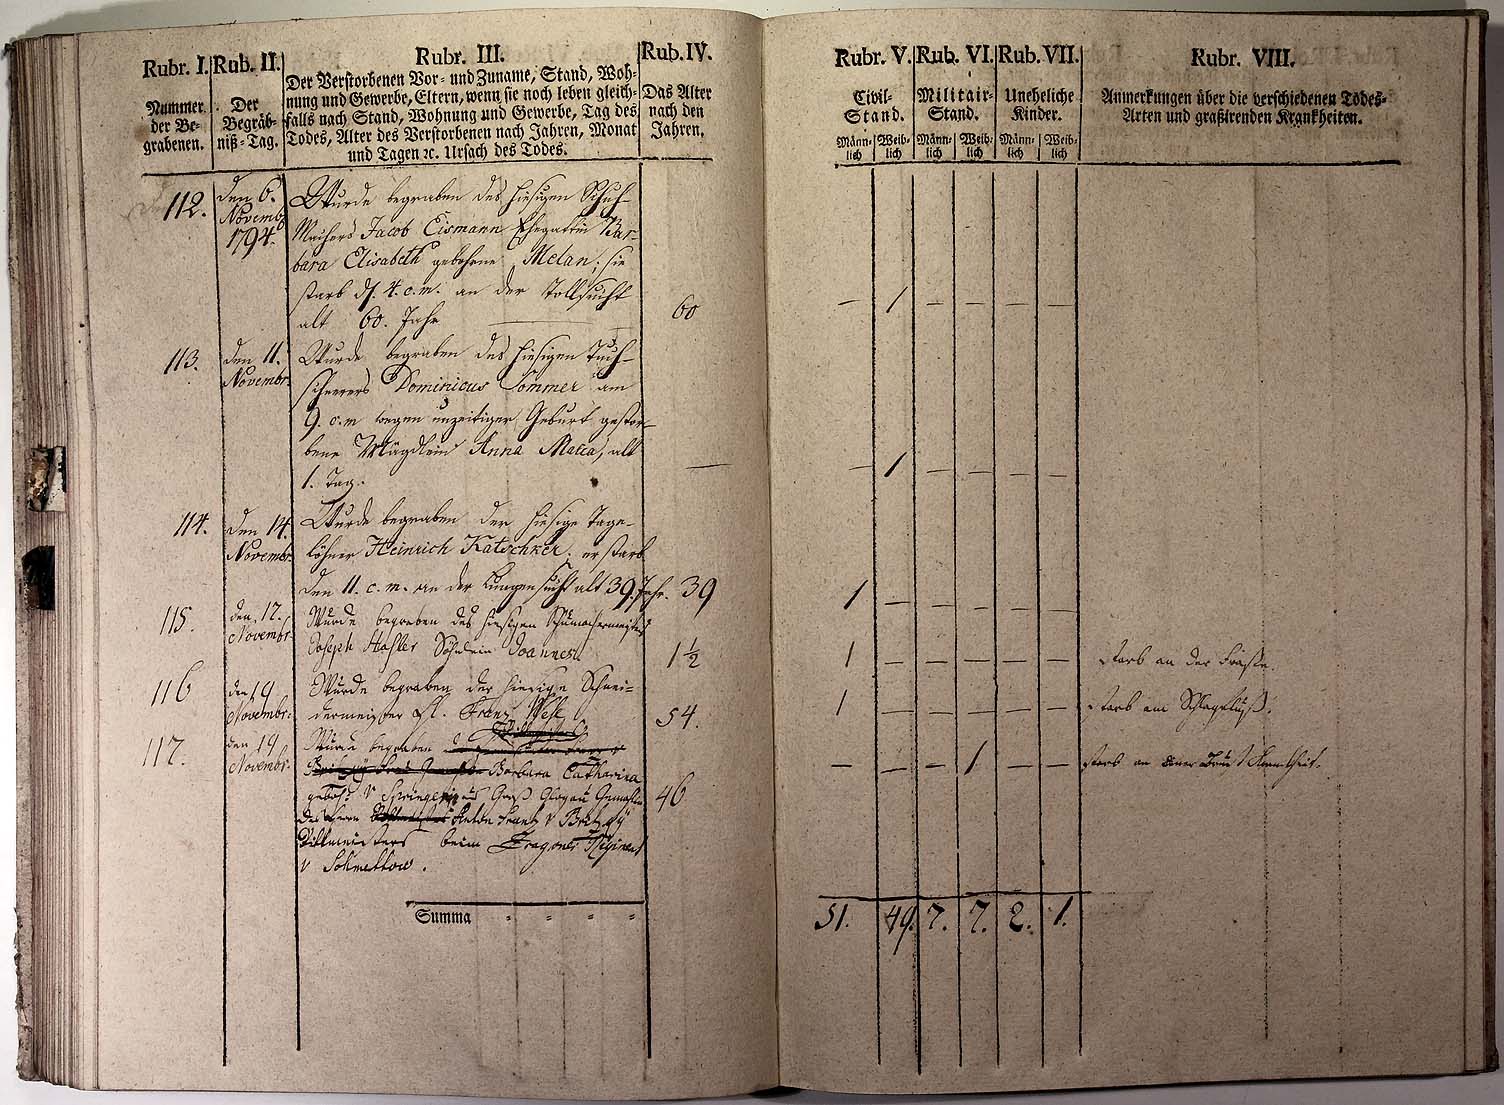 Rubr. I.
Nummer
der Be-
grabenen.
Rub. II.
Der
Begräb-
niß-Tag.
Rubr. III.
Der Verstorbenen Vor- und Zuname, Stand, Woh-
nung und Gewerbe, Eltern, wenn sie noch leben gleich-
falls nach Stand, Wohnung und Gewerbe, Tag des
Todes, Alter des Verstorbenen nach Jahren, Monat
und Tagen ꝛc. Ursach des Todes.
Rub. IV.
Das Alter
nach den
Jahren.
112.
den 6.
Novemb.
1794.
Wurde begraben des hiesigen Schuh-
Machers Jacob Eismann Ehegattin Bar-
bara Elisabeth gebohrne Melan; sie
starb d. 4. c. m. an der Tollsucht
alt 60. Jahr
60
113.
den 11.
Novembr.
Wurde begraben des hiesigen Tuch-
scherrers Dominicus Sommer am
9. c. m. wegen unzeitiger Geburt gestor-
bene Mägdlein Anna Maria, alt
1. Tag.
—
114.
den 14.
Novembr.
Wurde begraben der hiesige Tage-
löhner Heinrich Katschker; er starb
den 11. c. m. an der Lungensucht alt 39. Jahr.
39
115.
den 17.
Novembr.
Wurde begraben des hiesigen Schumachermeisters
Joseph Hasler Söhnlein Joannes.
1 ½
116
den 19
Novembr.
Wurde begraben der hiesige Schnei-
dermeister Franz
54.
117.
den 19
Novembr.
Wurde begraben
Barbara Catharina
geboh. v aus Groß Glogau Gemahlin
des Herrn Anton Franz v
Rittmeisters beim Dragoner Regiment
v
46
Summa " " " "
Rubr. V.
Civil-
Stand.
Männ-
lich
Weib-
lich
Rub. VI.
Militair-
Stand.
Männ-
lich
Weib-
lich
Rub. VII.
Uneheliche
Kinder.
Männ-
lich
Weib-
lich
Rubr. VIII.
Anmerkungen über die verschiedenen Todes-
Arten und graßirenden Krankheiten.
— 1 — — — —
— 1 — — — —
1 — — — — —
1 — — — — — starb an der
1 — — — — — starb am Schlagfluß.
— — — 1 — — starb an einer Brust Krankheit.
51. 49. 7. 7. 2. 1.